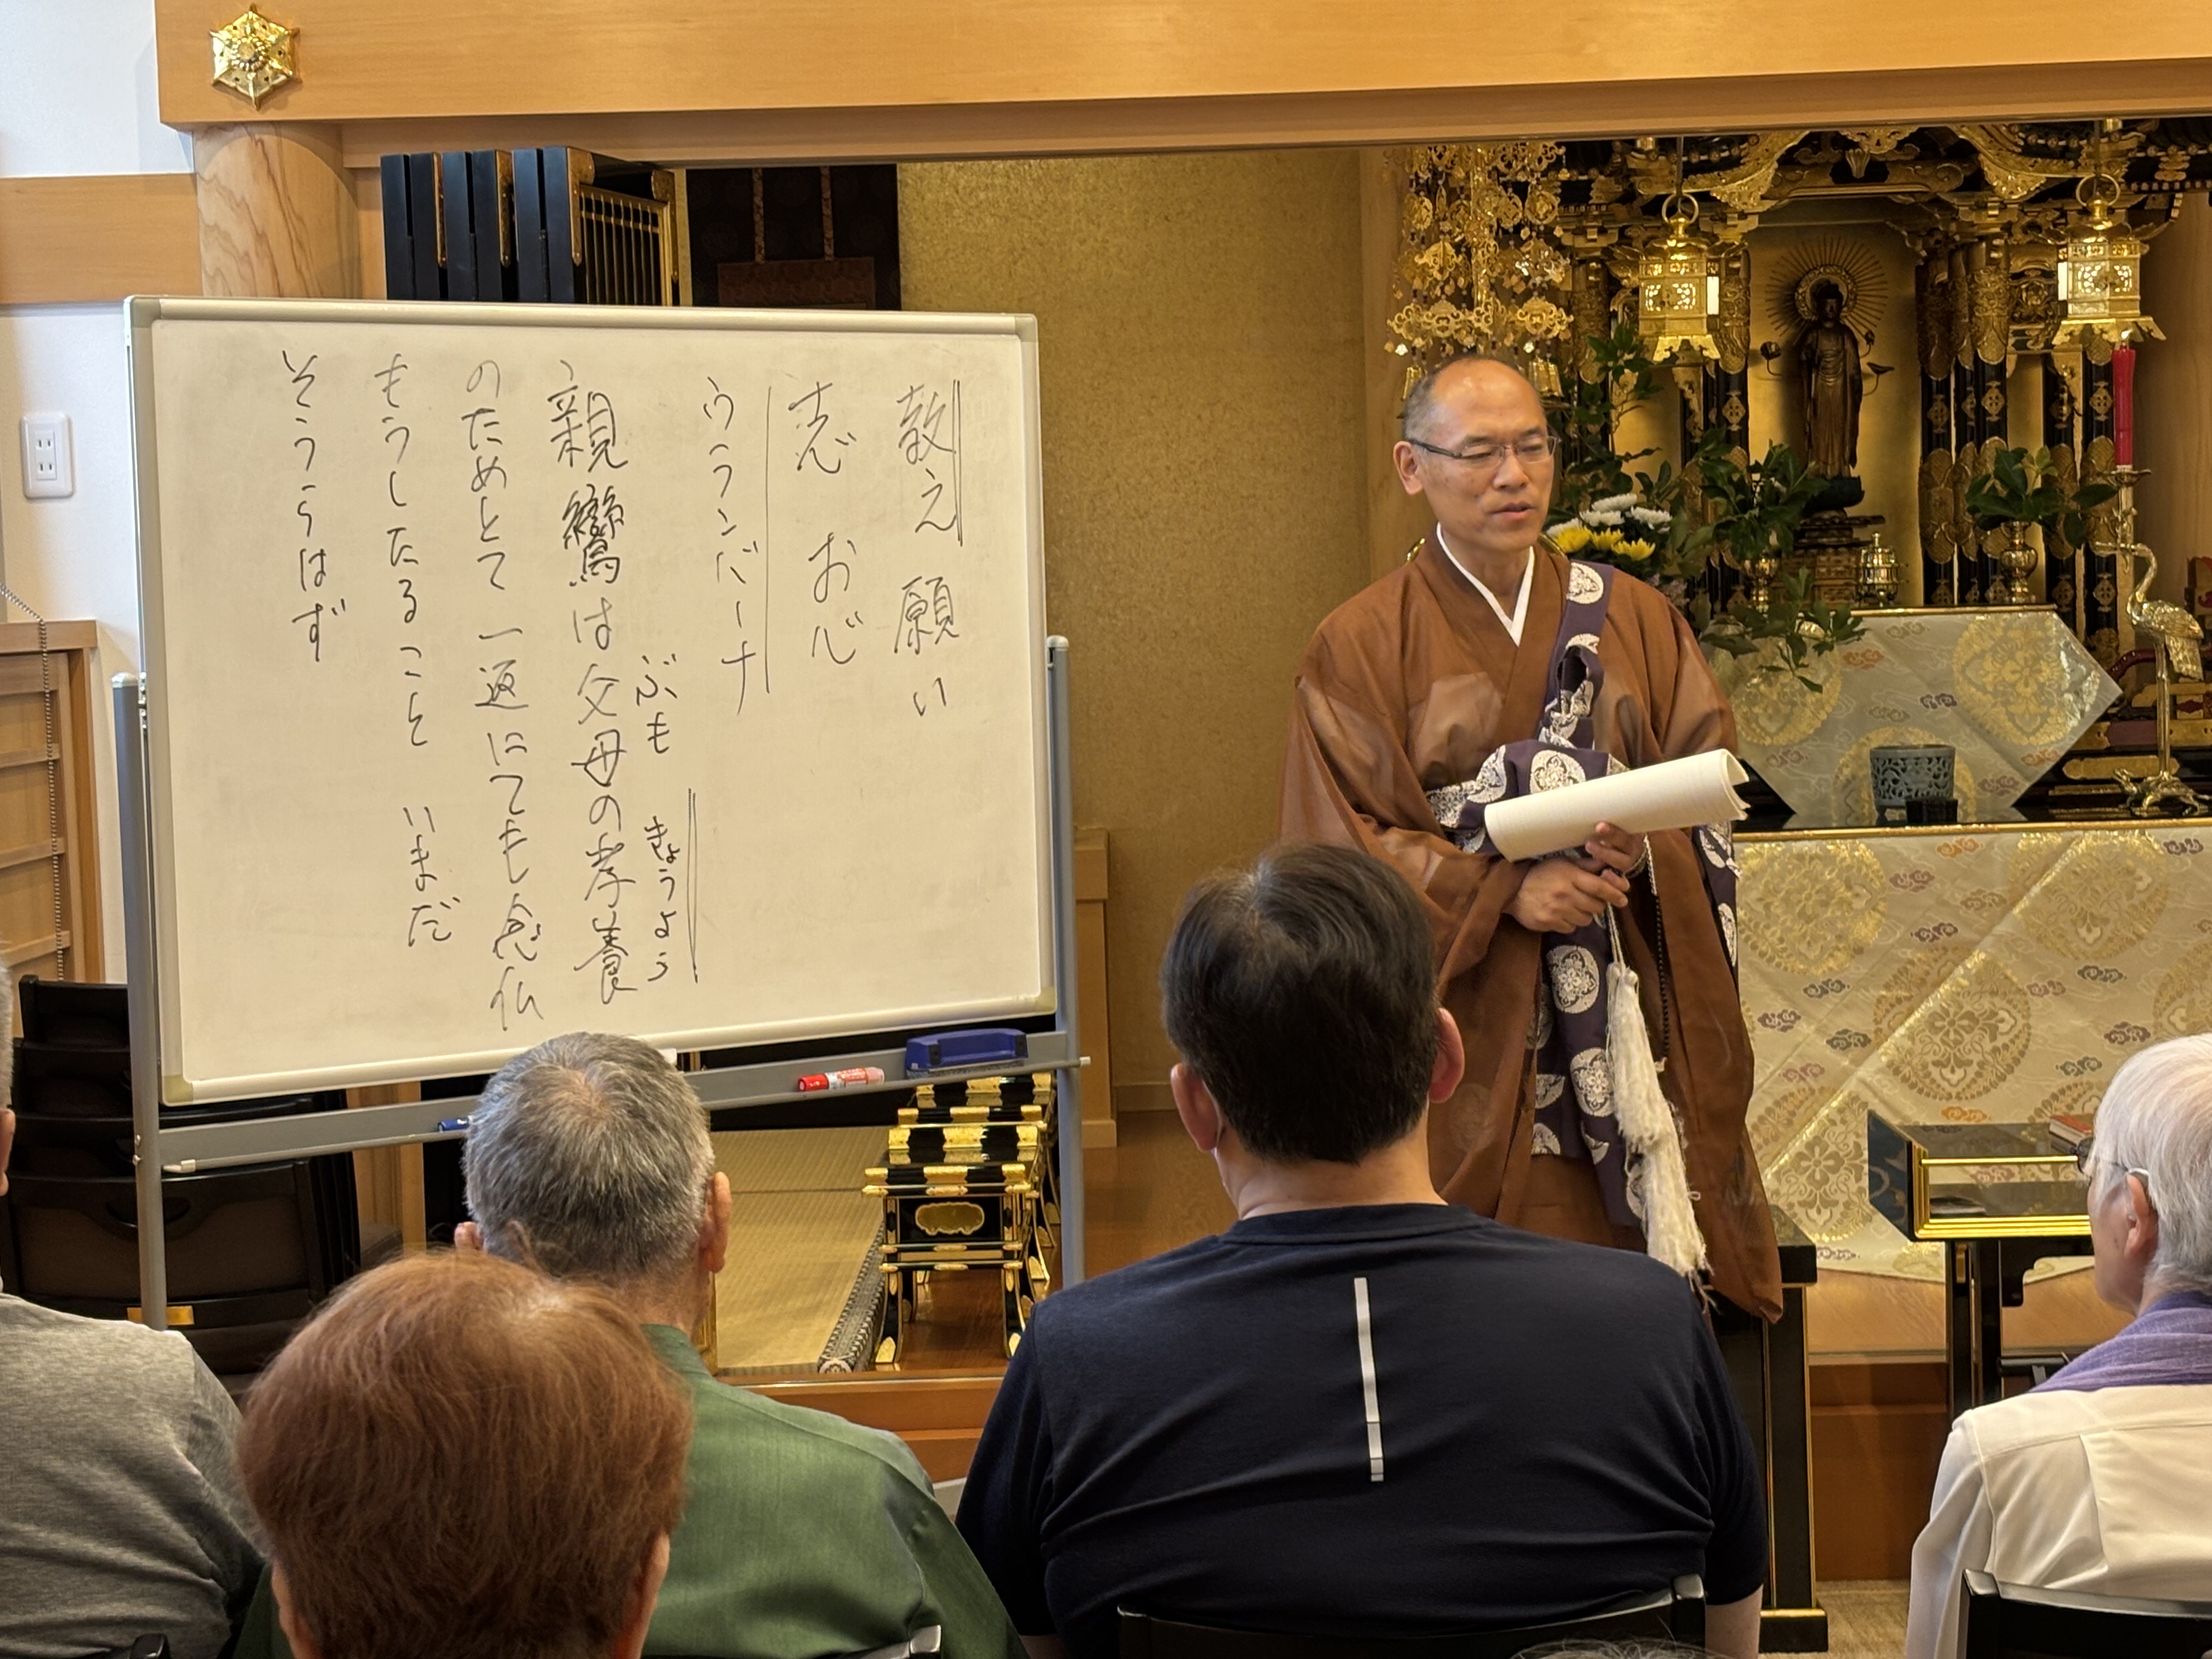 教え 願い
ウランバーナ
ぶも きょうよう
親鸞は父母の孝養
のためとて一返にても念仏
もうしたること いまだ
そうらはず